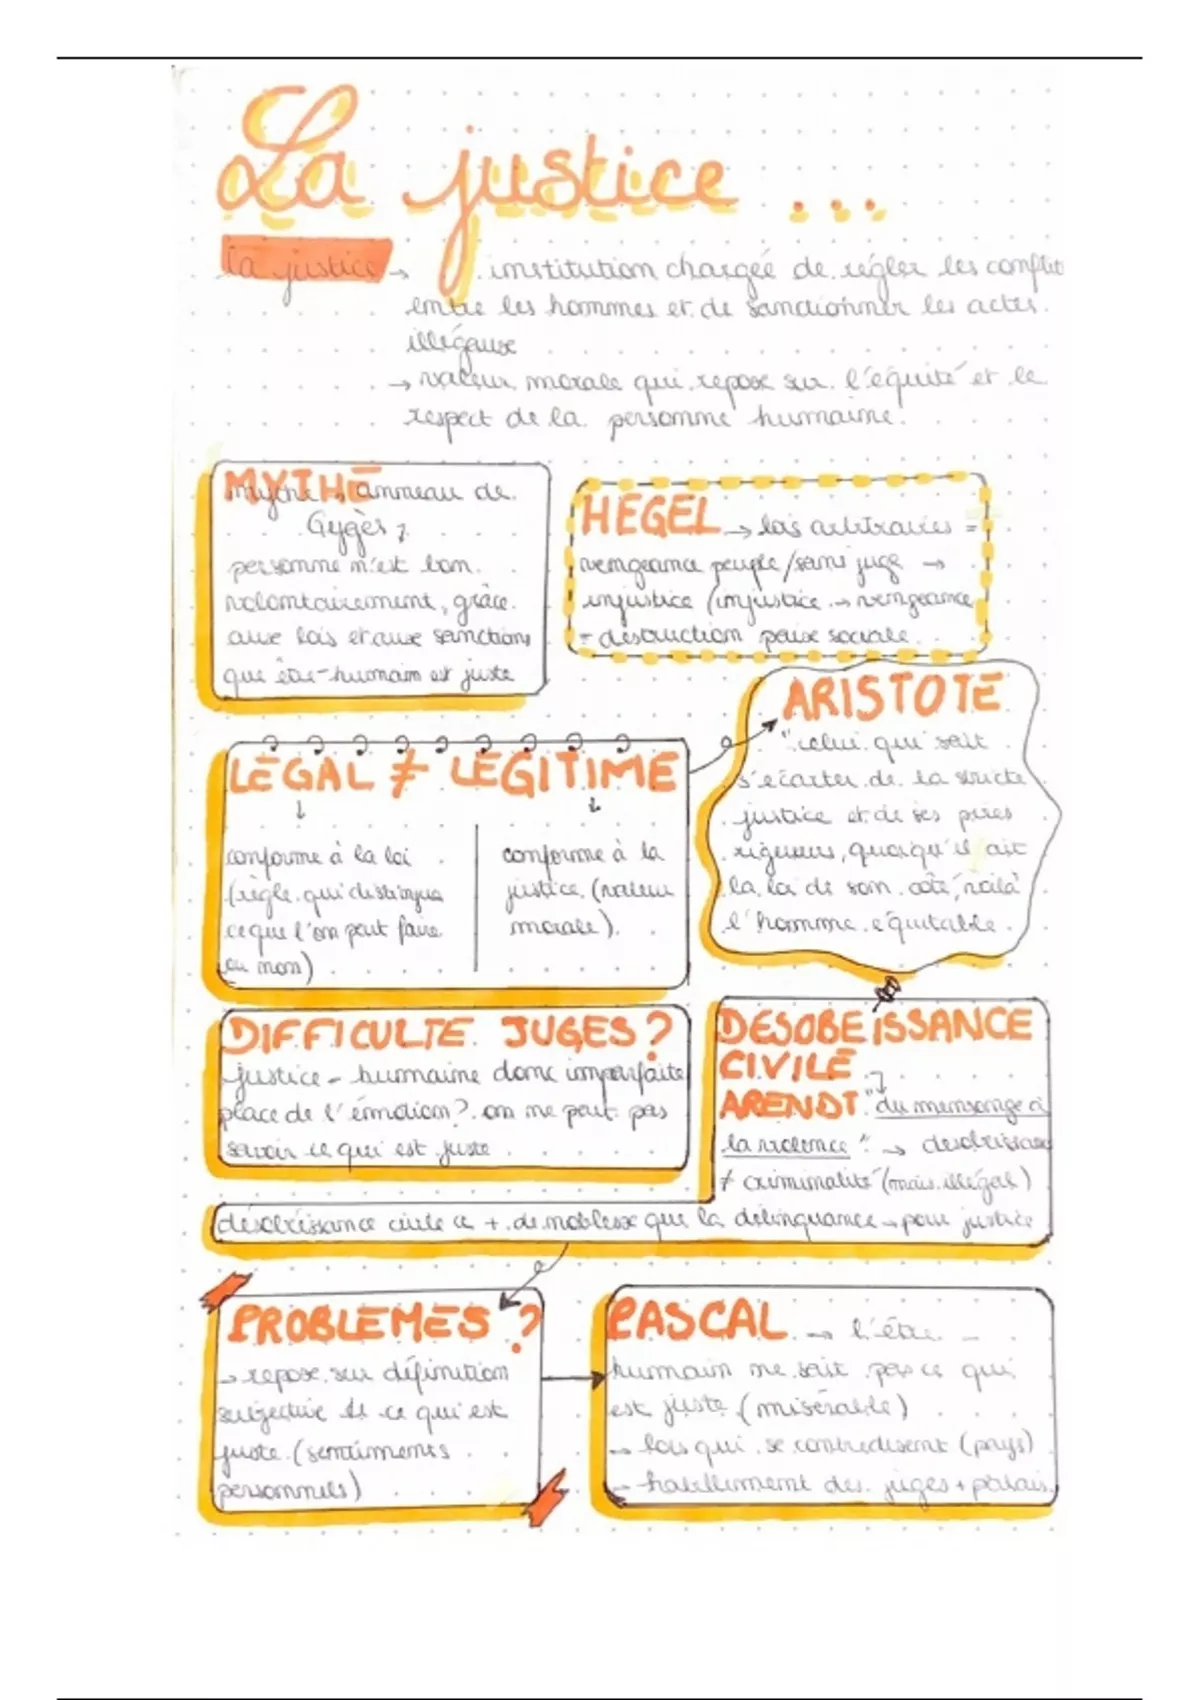 La justice ...
la justice → institution chargée de régler les conflits
entre les hommes et de sanctionner les actes
illégaux
→ valeur morale qui repose sur l'équité et le
respect de la personne humaine.
MYTHE
mythe → anneau de
Gygès
personne n'est bon
volontairement, grâce
aux lois et aux sanctions
que être-humain est juste
HEGEL → lois arbitraires =
vengeance peuple/sans juge →
injustice (injustice → vengeance
= destruction paix sociale
ARISTOTE
"celui qui sait
s'écarter de la stricte
justice et de ses pires
rigueurs, quoiqu'il ait
la loi de son côté, voilà
l'homme équitable
LEGAL ≠ LEGITIME
↓ ↓
conforme à la loi
(règle qui distingue
ce que l'on peut faire
ou non)
conforme à la
justice (valeur
morale).
DIFFICULTE JUGES ?
justice = humaine donc imparfaite
place de l'émotion? on ne peut pas
savoir ce qui est juste
DESOBEISSANCE
CIVILE
ARENDT "du mensonge à
la violence" → désobéissance
≠ criminalité (mais illégal)
désobéissance civile a + de noblesse que la délinquance → pour justice
PROBLEMES ?
→ repose sur définition
subjective de ce qui est
juste (sentiments
personnels)
PASCAL → l'être
humain ne sait pas ce qui
est juste (misérable)
→ lois qui se contredisent (pays)
→ habillement des juges + palais